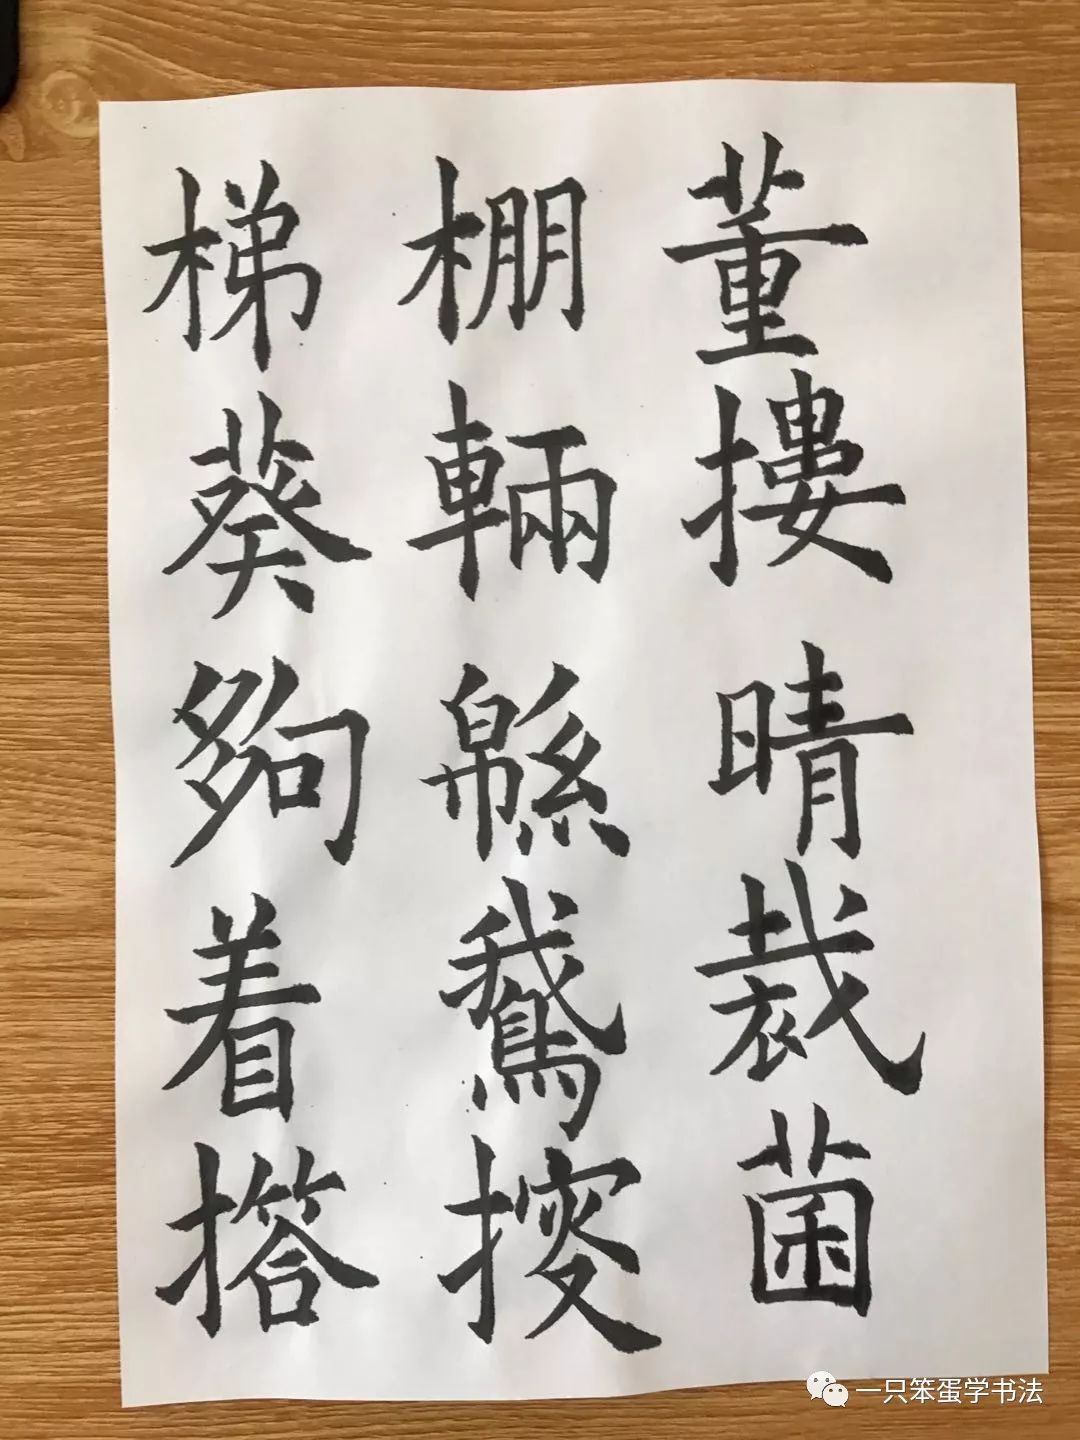 董摟晴裁菌
棚輛緜䳘搜
梯葵夠着撘
一只笨蛋学书法